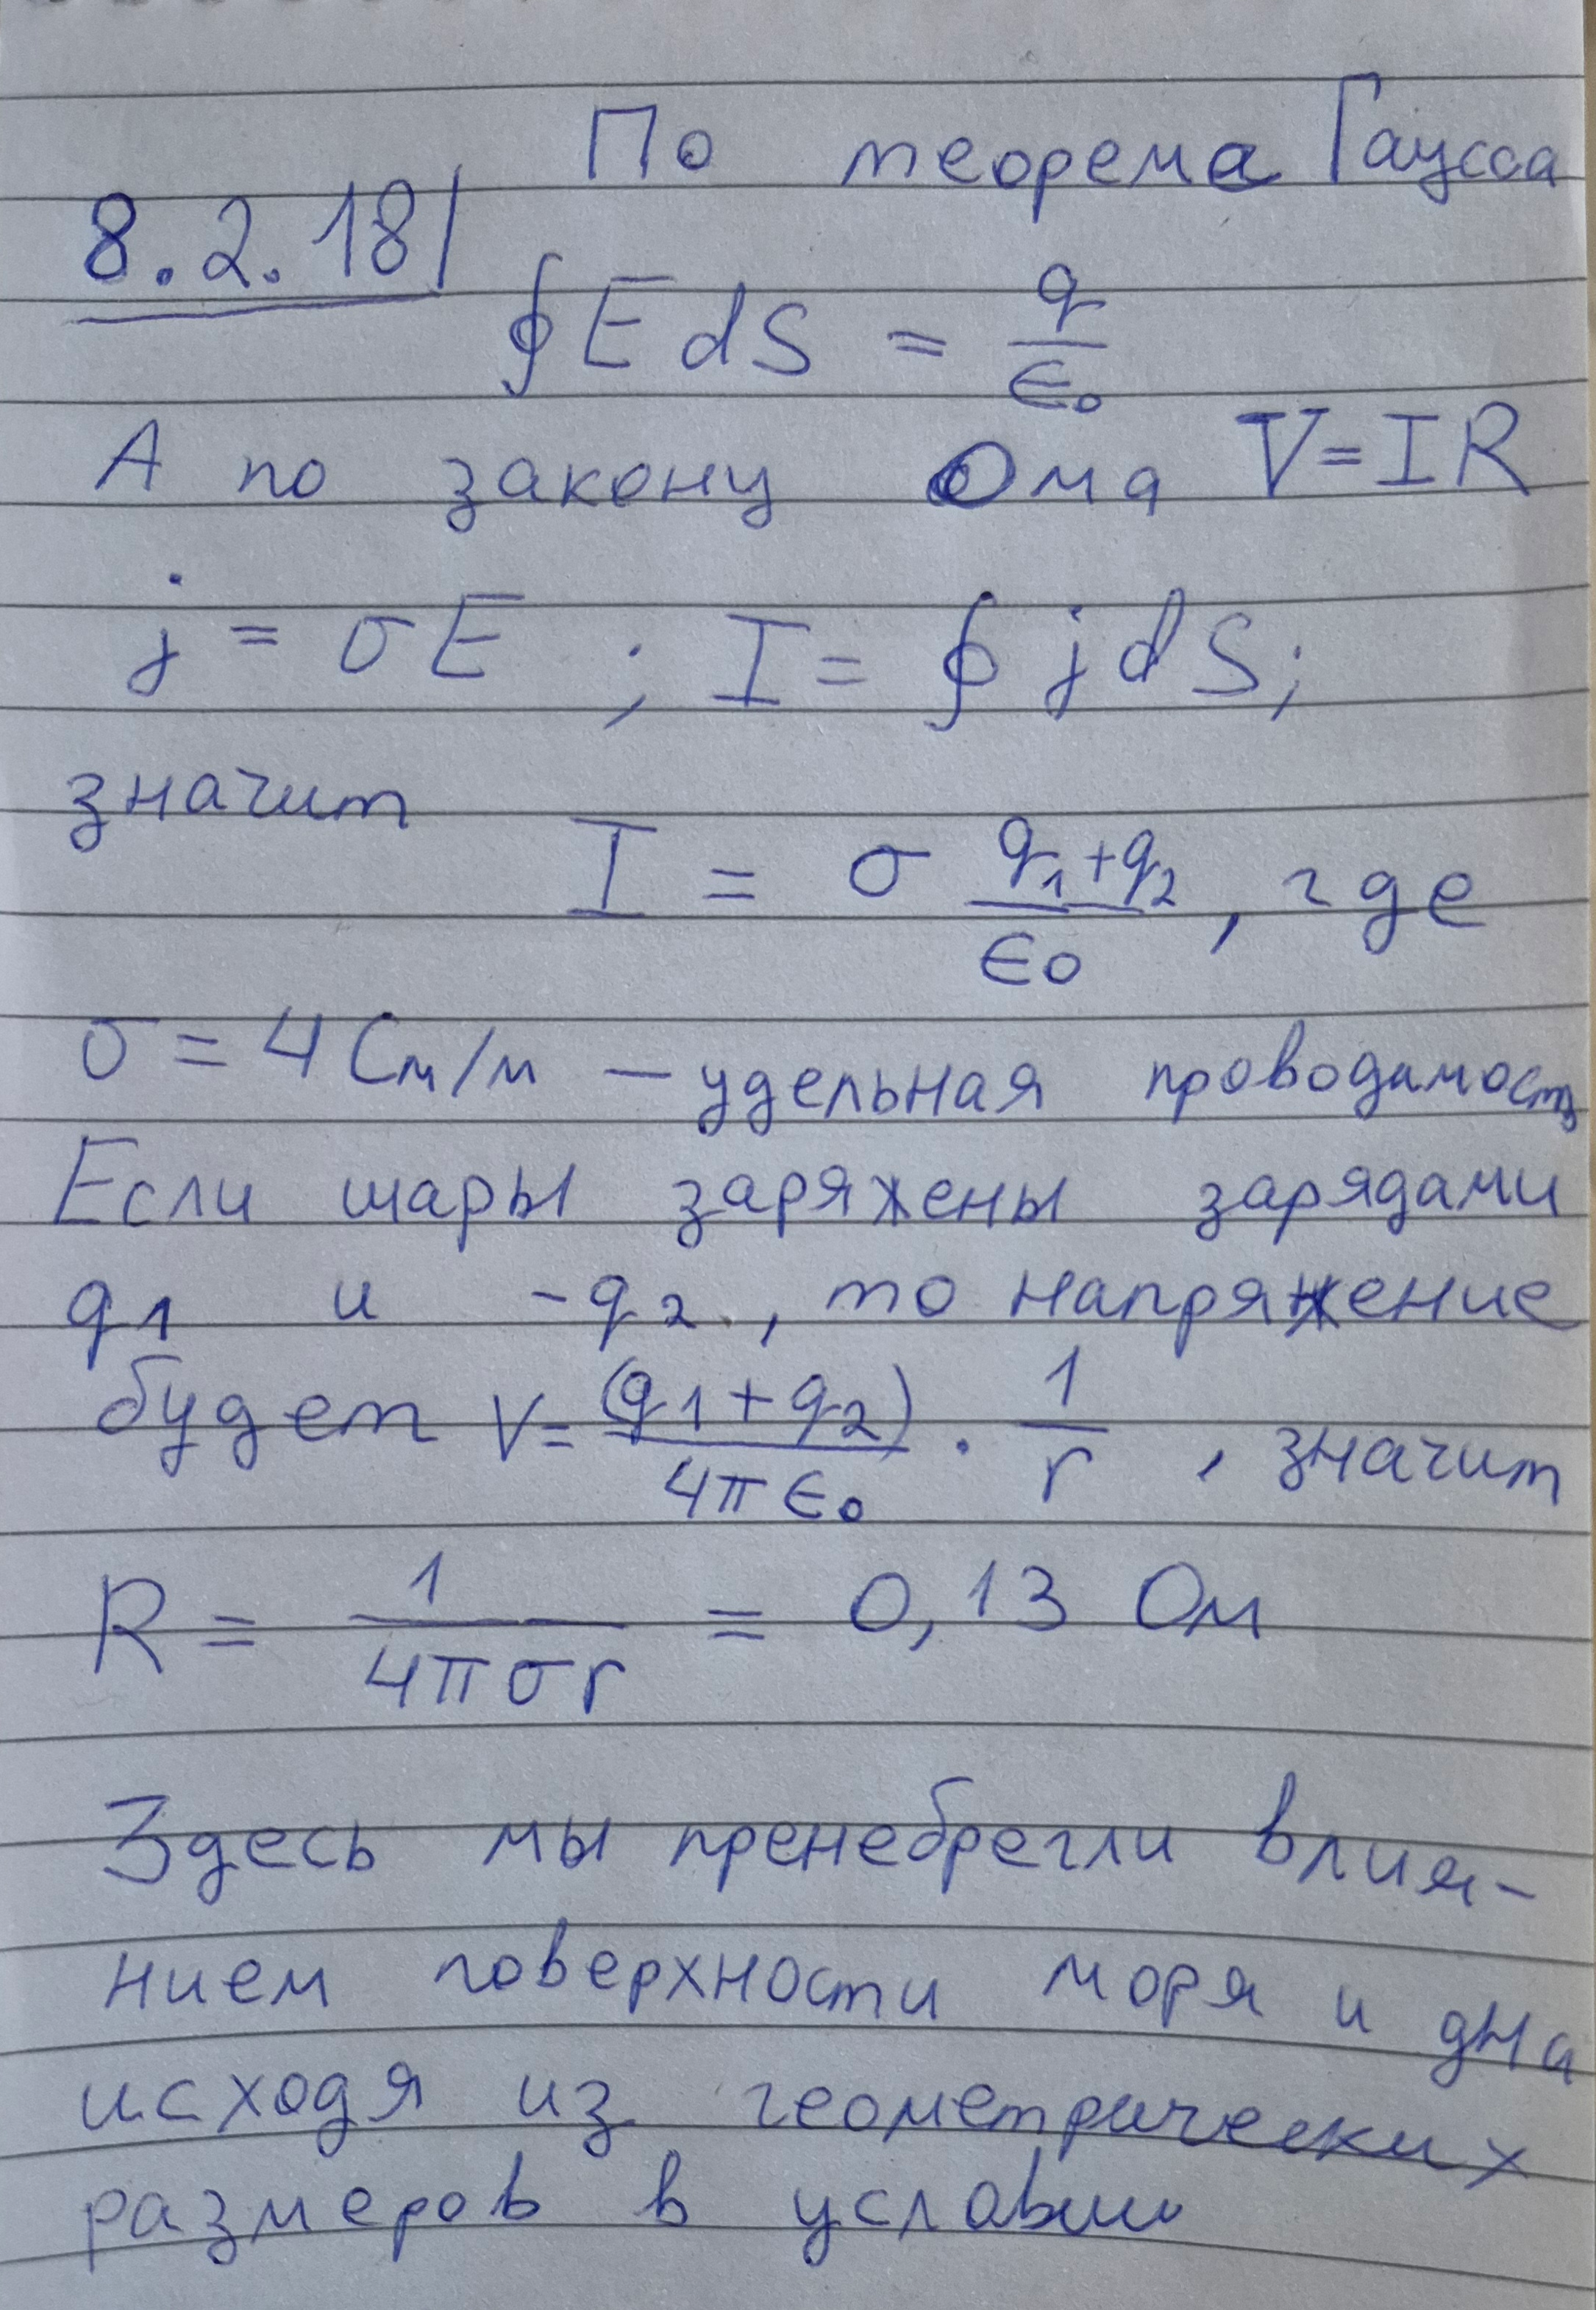 По теорема Гаусса
8.2.18
∮EdS = q/ε₀
А по закону Ома V=IR
j = σE ; I = ∮jdS;
значит
I = σ (q₁+q₂)/ε₀, где
σ = 4 См/м — удельная проводимость
Если шары заряжены зарядами
q₁ и -q₂, то напряжение
будет V= (q₁+q₂)/4πε₀ · 1/r, значит
R = 1/4πσr = 0,13 Ом
Здесь мы пренебрегли влия-
нием поверхности моря и дна
исходя из геометрических
размеров в условии